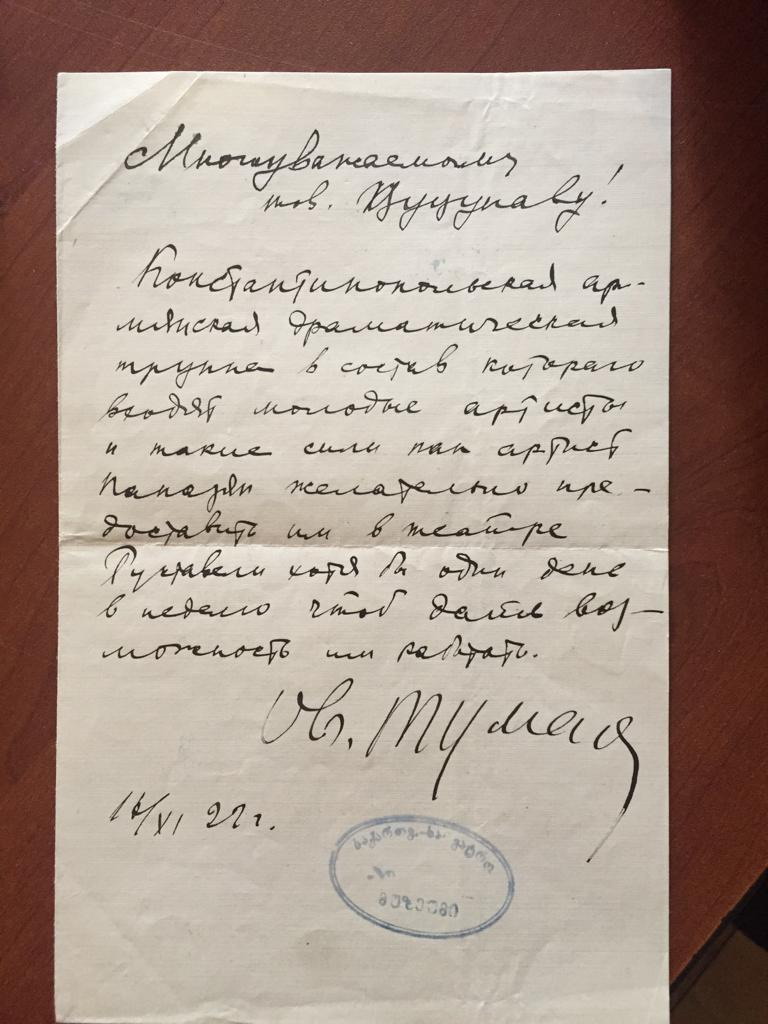 Многоуважаемому
тов. Цуцунаву!
Константинопольская ар-
мянская драматическая
труппа в состав котораго
входят молодые артисты
и такие сили как артист
Папазян желательно пре-
доставить им в театре
Руставели хотя бы один день
в неделю чтоб дать воз-
можность им работать.
Ов. Тумая
/XI 22 г.